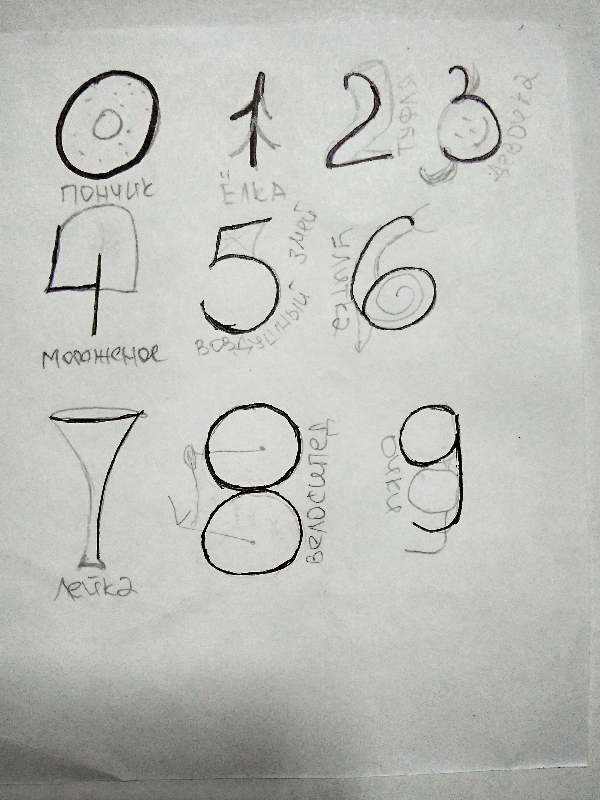 0 1 2 3
ПОНЧИК
ЁЛКА
ТУФЛЯ
4 5 6
МОРОЖЕНОЕ
ВОЗДУШНЫЙ ЗМЕЙ
УЛИТКА
7 8 9
ЛЕЙКА
ВЕЛОСИПЕД
ОЧКИ